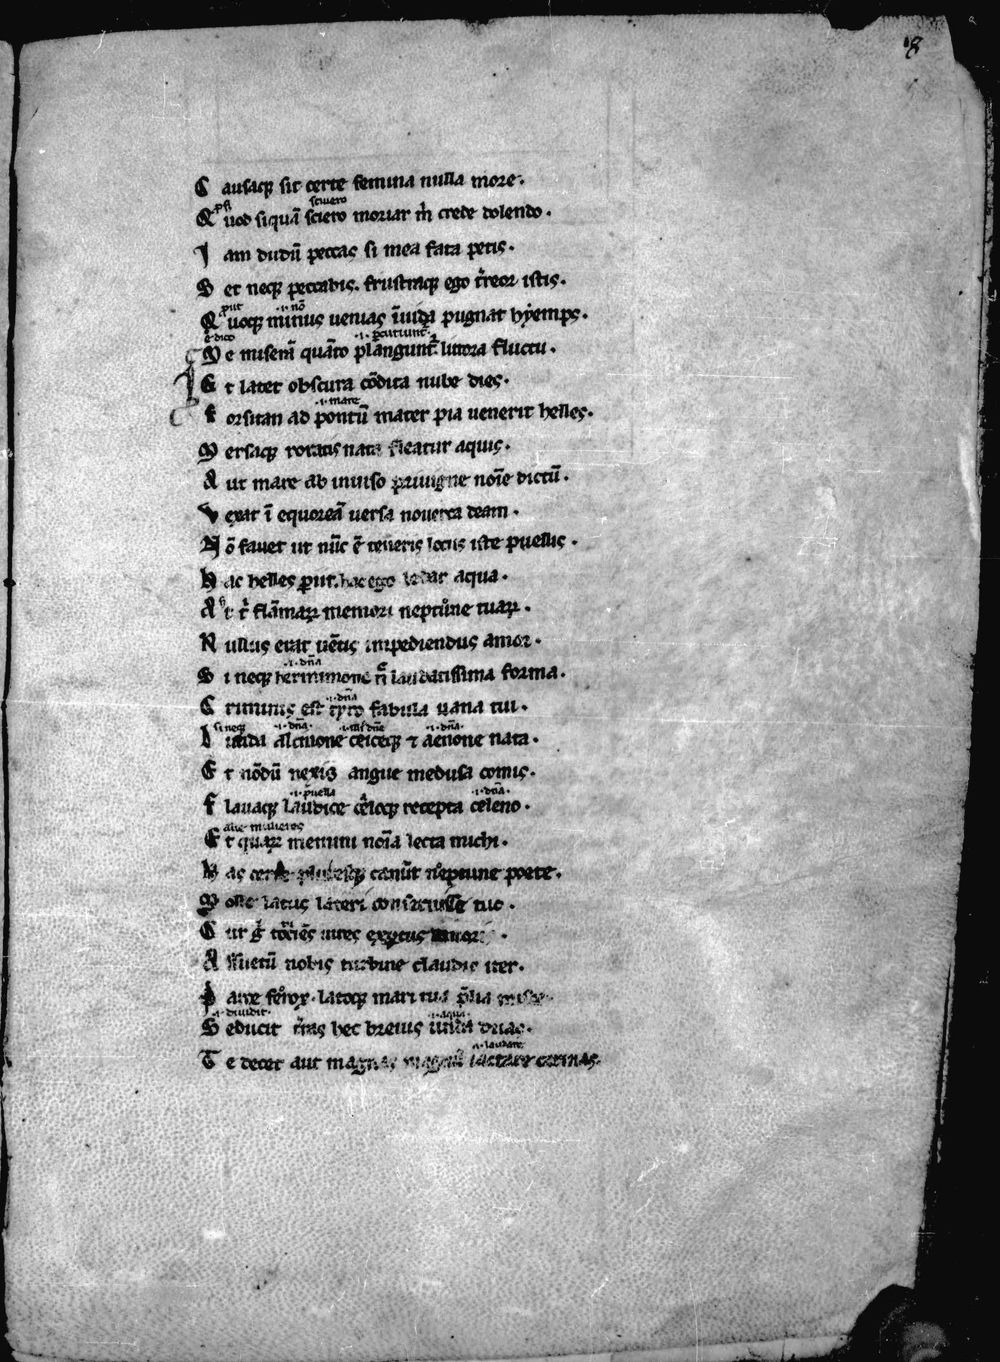 18
Causaq; sit certe femina nulla more.
scivero
Quod siquā sciero moriar m̄ crede dolendo.
Iam dudū peccas si mea fata petis.
Set neq; peccabis. frustraq; ego t̄reor istis.
.i. nō
Quoq; minus venias īvida pugnat hyemps.
.i. percutiunt
Me miserū quāto plangunt litora fluctu.
Et latet obscura cōdita nube dies.
.i. mare
Forsitan ad pontū mater pia venerit helles.
Mersaq; roratis nata fleatur aquis.
Aut mare ab inviso privigne noīe dictū.
Vexat ī equoreā versa noverca deam.
Nō favet ut nūc ē teneris locus iste puellis.
Hac helles perit. hac ego ledar aqua.
At t̄ flāmaꝝ memori neptune tuaꝝ.
Nullus erat vētis impediendus amor.
.i. dn̄a
Si neq; hermimone n̄ laudatissima forma.
.i. dn̄a
Criminis est tyro fabula vana tui.
si neq; .i. dn̄a .i. dn̄a
alcinone ceiceq; ⁊ aenone nata.
Et nōdū nexis angue medusa comis.
.i. puella .i. dn̄a
Flavaq; laudice celoq; recepta celeno.
alie mulieres
Et quaꝝ memini noīa lecta michi.
Has certe pluresq; canūt neptune poete.
Molle latus lateri conseruisse tuo.
Cur g̊ tociēs vires
Assuetū nobis turbine claudis iter.
ferox. latoq; mari tua p̄lia
.i. dividit .i. aqua
Seducit t̄ras hec brevis unda duas.
.i. laudare
Te decet aut magnas magnū iactare carinas.